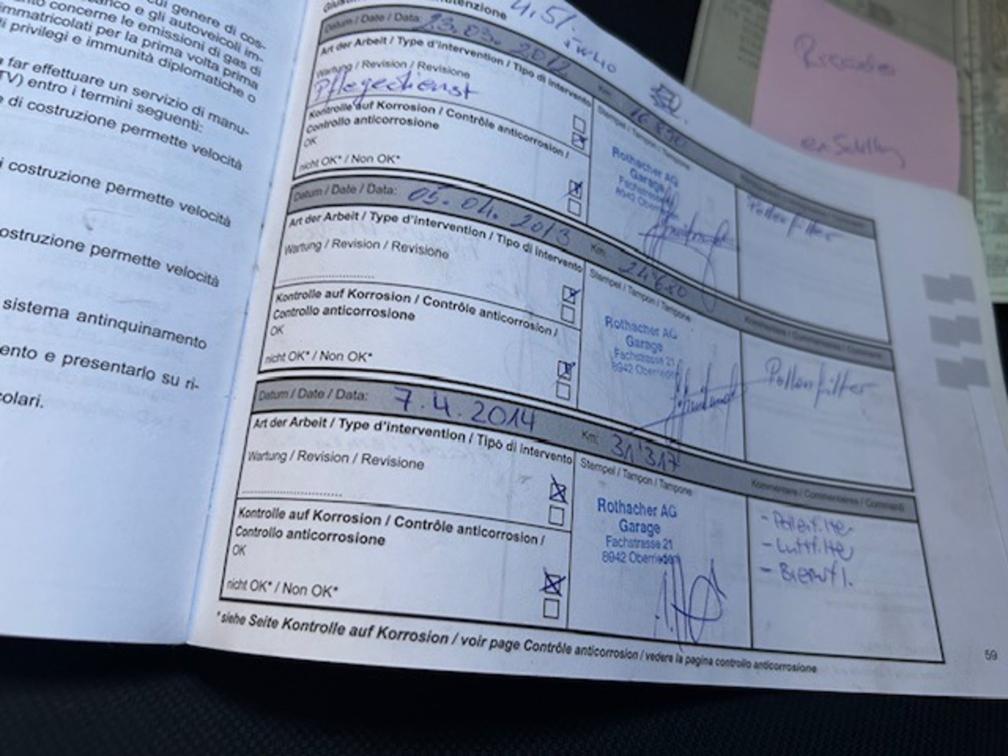 cui genere di cos-
anco e gli autoveicoli im-
into concerne le emissioni di gas di
immatricolati per la prima volta prima
di privilegi e immunità diplomatiche o
a far effettuare un servizio di manu-
TV) entro i termini seguenti:
e di costruzione permette velocità
i costruzione permette velocità
ostruzione permette velocità
sistema antinquinamento
ento e presentarlo su ri-
colari.
4,5l
Datum / Date / Data: 23.03.2012 Km:
Art der Arbeit / Type d'intervention / Tipo di intervento
Wartung / Revision / Revisione
Pflegedienst
Kontrolle auf Korrosion / Contrôle anticorrosion /
Controllo anticorrosione
OK
nicht OK* / Non OK*
Stempel / Tampon / Tampone
Rothacher AG
Garage
Fachstrasse
8942 Oberrieden
Pollenfilter
Datum / Date / Data: 05.04.2013 Km: 24'650
Art der Arbeit / Type d'intervention / Tipo di intervento
Wartung / Revision / Revisione
Kontrolle auf Korrosion / Contrôle anticorrosion /
Controllo anticorrosione
OK
nicht OK* / Non OK*
Stempel / Tampon / Tampone
Rothacher AG
Garage
Fachstrasse 21
8942 Oberrieden
Kommentare / Commentaires / Commenti
Pollenfilter
Datum / Date / Data: 7.4.2014 Km: 31'317
Art der Arbeit / Type d'intervention / Tipo di intervento
Wartung / Revision / Revisione
Kontrolle auf Korrosion / Contrôle anticorrosion /
Controllo anticorrosione
OK
nicht OK* / Non OK*
Stempel / Tampon / Tampone
Rothacher AG
Garage
Fachstrasse 21
8942 Oberrieden
Kommentare / Commentaires / Commenti
- Pollenfilter
- Luftfilter
- Bremsfl.
*siehe Seite Kontrolle auf Korrosion / voir page Contrôle anticorrosion / vedere la pagina controllo anticorrosione
59